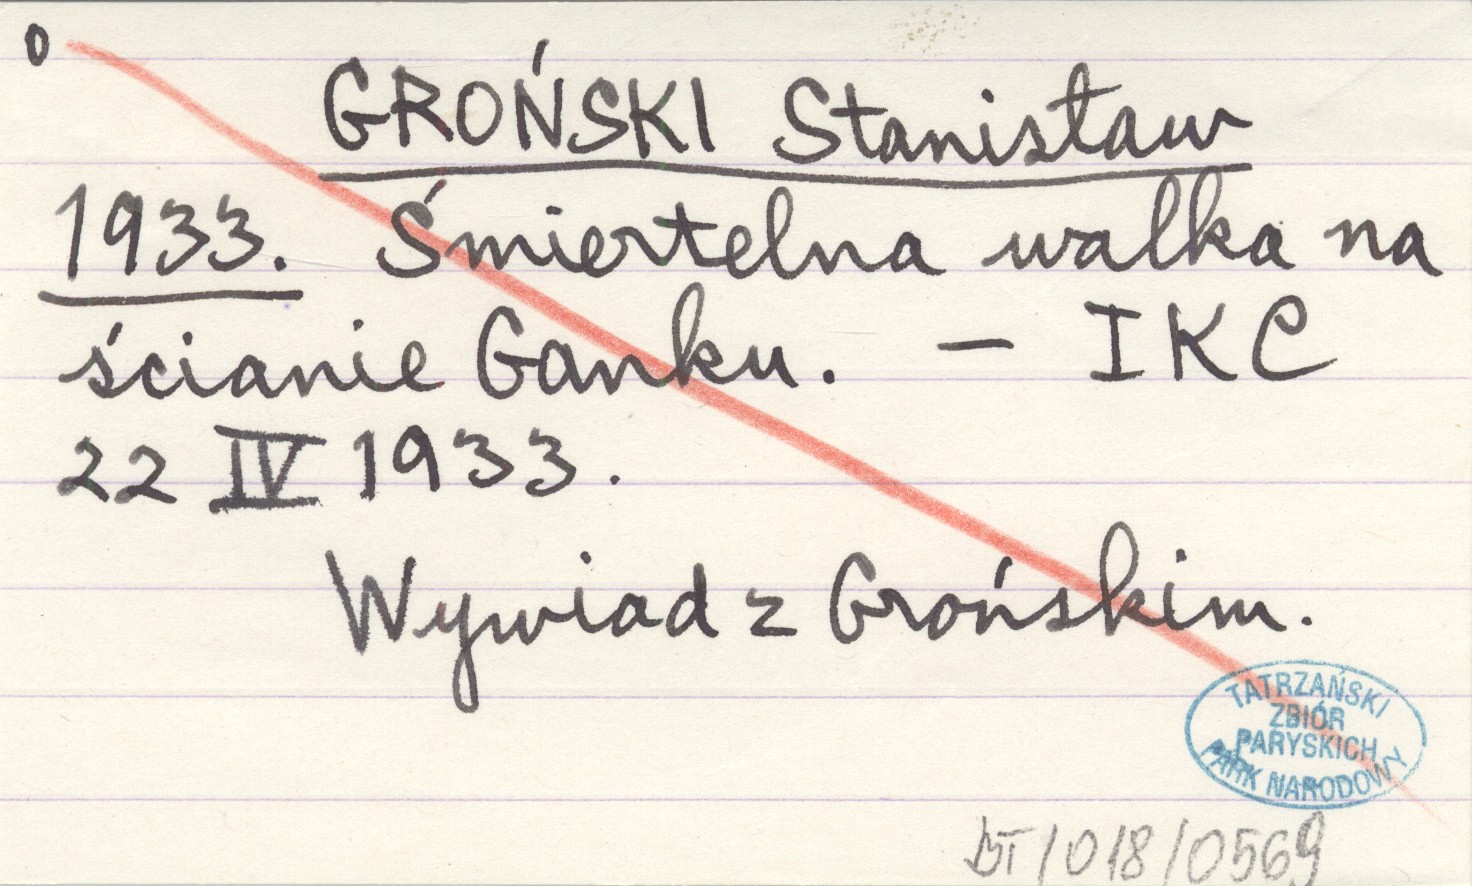 0
GROŃSKI Stanisław
1933. Śmiertelna walka na
ścianie Ganku. – IKC
22 IV 1933.
Wywiad z Grońskim.
TATRZAŃSKI
ZBIÓR
PARYSKICH
PARK NARODOWY
BT/018/0569